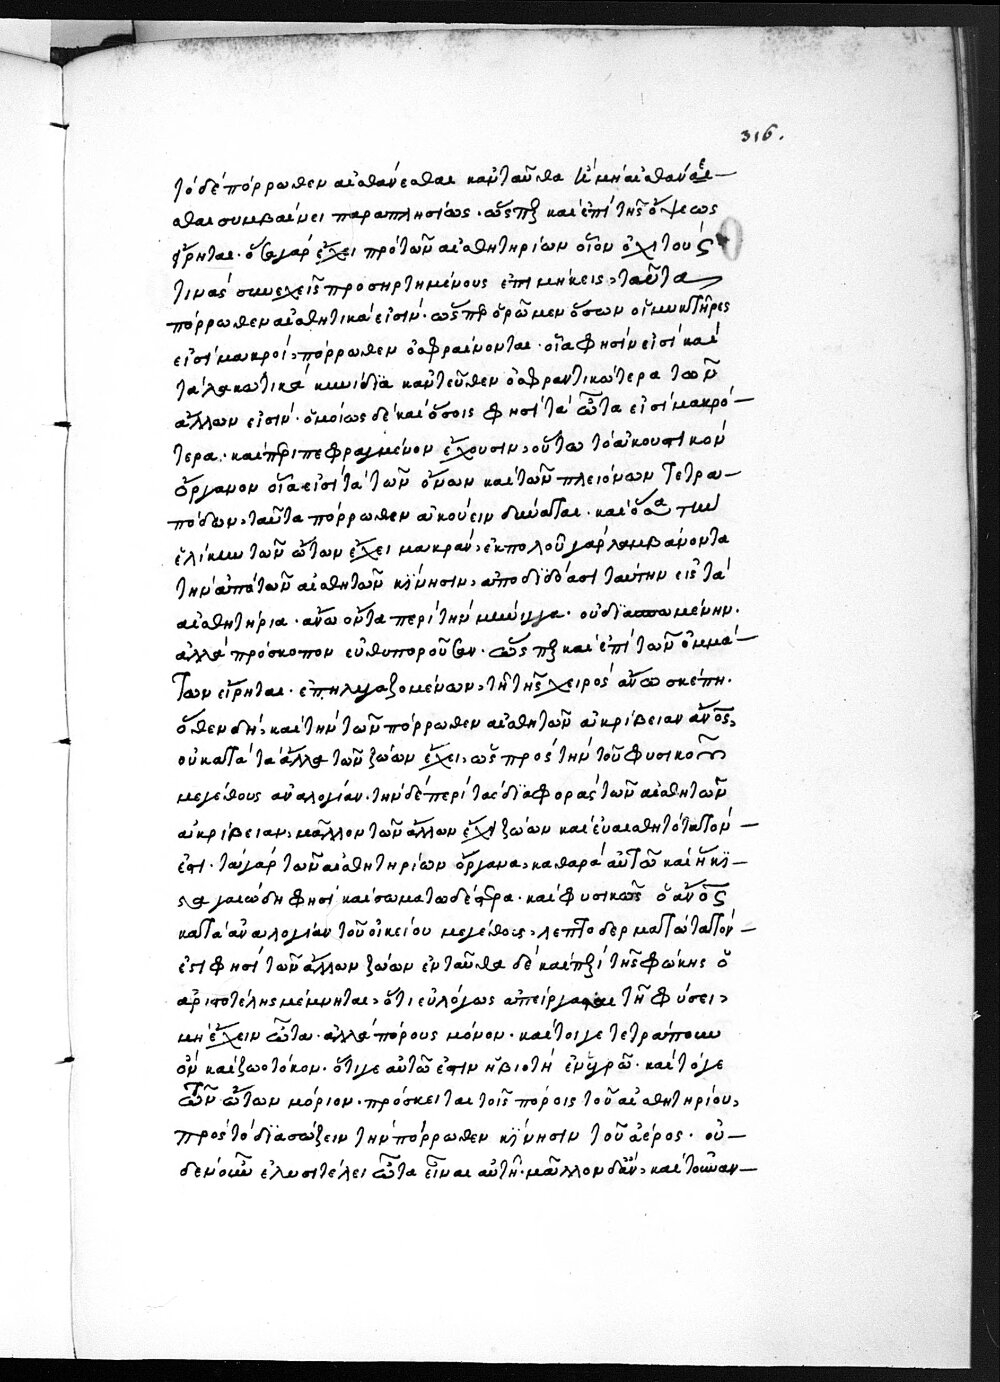 316.
τὸ δὲ πόρρωθεν αἰσθάνεσθαι κἀνταῦθα ἢ μὴ αἰσθάνεσ-
θαι συμβαίνει παραπλησίως· ὥσπερ καὶ ἐπὶ τῆς ὄψεως
εἴρηται· ὅσα γὰρ ἔχει πρὸ τῶν αἰσθητηρίων οἷον ὀχετούς
τινας συνεχεῖς προσηρτημένους ἐπιμήκεις, ταῦτα
πόρρωθεν αἰσθητικά εἰσιν· ὥσπερ ὁρῶμεν ὅσων οἱ μυκτῆρες
εἰσὶ μακροί, πόρρωθεν ὀσφραίνονται· οἷα φησὶν εἰσὶ καὶ
τὰ λακωτικὰ κυνίδια κἀντεῦθεν ὀσφραντικώτερα τῶν
ἄλλων εἰσίν· ὁμοίως δὲ καὶ ὅσοις φησὶ τὰ ὦτα εἰσὶ μακρό-
τερα· καὶ περιπεφραγμένον ἔχουσιν, οὕτω τὸ ἀκουστικὸν
ὄργανον οἷα εἰσὶ τὰ τῶν ὄνων καὶ τῶν πλειόνων τετρα-
πόδων, ταῦτα πόρρωθεν ἀκούειν δύναται· καὶ ὅσα τὴν
ἕλικην τῶν ὤτων ἔχει μακράν, ἐκ πολλοῦ γὰρ λαμβάνοντα
τὴν ἀπὸ τῶν αἰσθητῶν κίνησιν, ἀποδιδόασι ταύτην εἰς τὰ
αἰσθητήρια· ἄνω ὄντα περὶ τὴν μήνιγγα· οὐ διασπωμένην·
ἀλλὰ πρόσκοπον εὐθυποροῦσαν· ὥσπερ καὶ ἐπὶ τῶν ὀμμά-
των εἴρηται· ἐπηλυγαζομένων, τῇ τῆς χειρὸς ἄνω σκέπῃ·
ὅθεν δὴ, καὶ τὴν τῶν πόρρωθεν αἰσθητῶν ἀκρίβειαν ἄνος,
οὐ κατὰ τὰ ἄλλα τῶν ζώων ἔχει, ὡς πρὸς τὴν τοῦ φυσικοῦ
μεγέθους ἀναλογίαν· τὴν δὲ περὶ τὰς διαφορὰς τῶν αἰσθητῶν
ἀκρίβειαν, μᾶλλον τῶν ἄλλων ἔχει ζώων καὶ εὐαισθητότατόν-
ἐστι· τὰ γὰρ τῶν αἰσθητηρίων ὄργανα, καθαρὰ αὐτῶ καὶ ἥκι-
στα γαιώδη φησὶ καὶ σωματωδέστερα· καὶ φυσικῶς ὁ ἄνος
κατὰ ἀναλογίαν τοῦ οἰκείου μεγέθους, λεπτοδερματώτατόν-
ἐστι φησὶ τῶν ἄλλων ζώων ἐνταῦθα δὲ καὶ περὶ τῆς φώκης ὁ
ἀριστοτέλης μέμνηται, ὅτι εὐλόγως ἀπείργασται τῇ φύσει,
μὴ ἔχειν ὦτα· ἀλλὰ πόρους μόνον· καίτοιγε τετράπουν
ὂν καὶ ζωοτόκον· ὅτιγε αὐτῶ ἐστιν ἡ βιοτὴ ἐν ὑγρῶ· καὶ τόγε
τῶν ὤτων μόριον· πρόσκειται τοῖς πόροις τοῦ αἰσθητηρίου,
πρὸς τὸ διασώζειν τὴν πόρρωθεν κίνησιν τοῦ ἀέρος· οὐ-
δὲν οὖν ἐλυσιτέλει ὦτα εἶναι αὐτῇ· μᾶλλον δ' ἂν, καὶ τοὐναν-